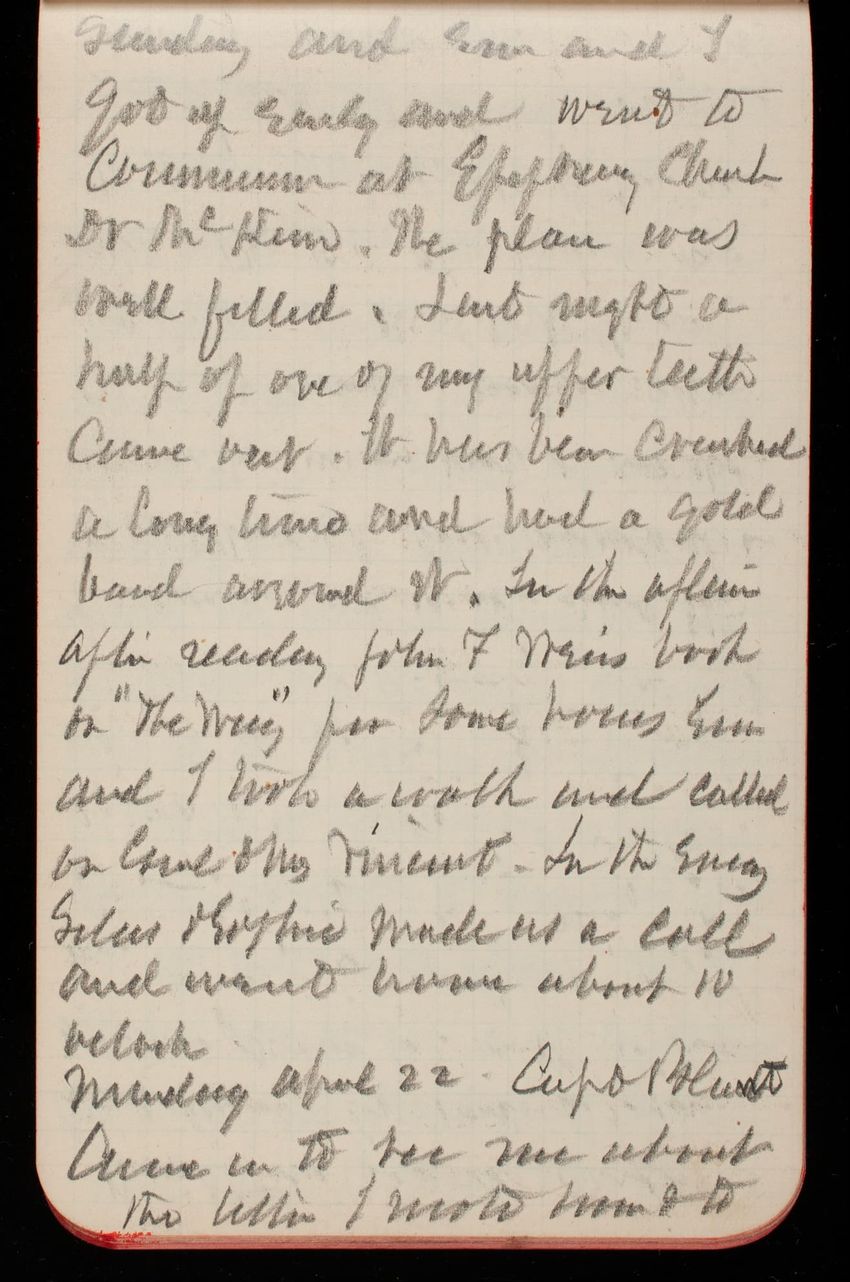 Sunday and Em and I
got up early and went to
Communion at Epiphany Church
Dr McKim. The place was
well filled. Last night a
half of one of my upper teeth
came out. It has been crushed
a long time and had a gold
band around it. In the
after reading John F Weirs book
on "The Way" for some hours Em
and I took a walk and called
on Carl & Mrs Vincent. In the Eveng
Silas & Sophie made us a call
and went home about 10
oclock
Monday April 22. Capt Blunt
Came in to see me about
the letter I wrote home & to